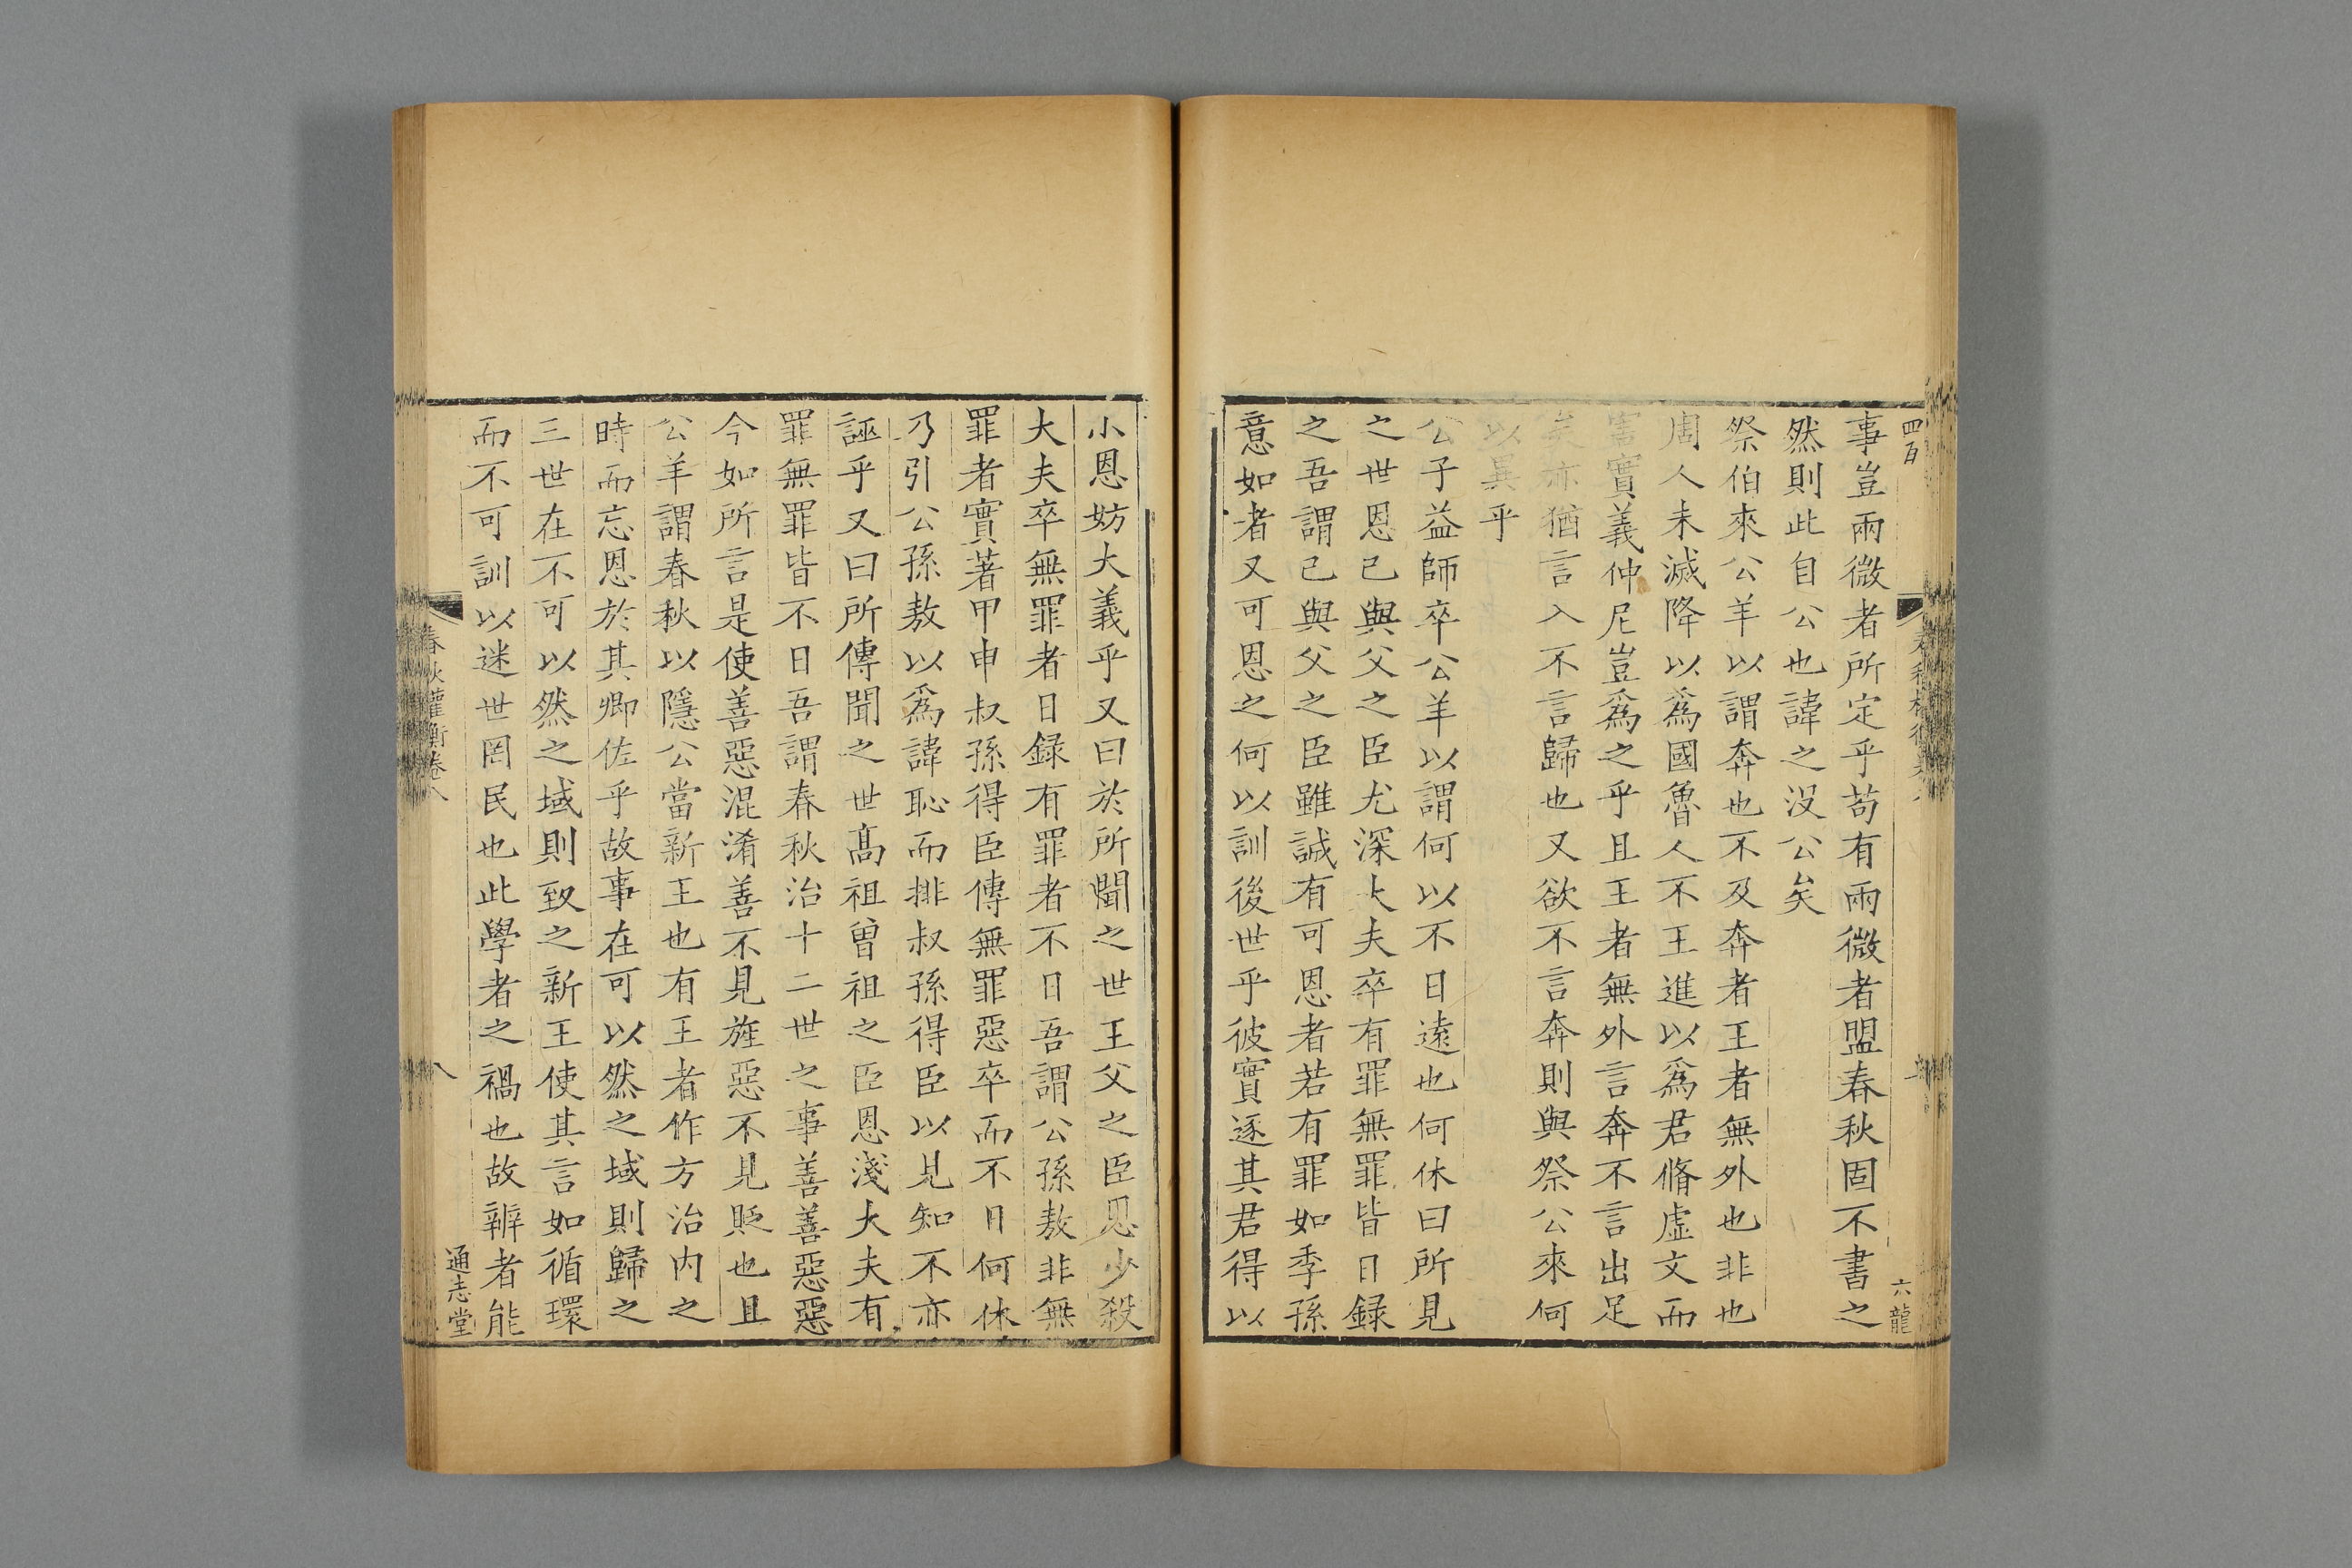 四百
六龍
事豈兩微者所定乎苟有兩微者盟春秋固不書之
然則此自公也諱之沒公矣
祭伯來公羊以謂奔也不及奔者王者無外也非也
周人未滅降以爲國魯人不王進以爲君脩虛文而
害實義仲尼豈爲之乎且王者無外言奔不言出足
矣亦猶言入不言歸也又欲不言奔則與祭公來何
以異乎
公子益師卒公羊以謂何以不日遠也何休曰所見
之世恩己與父之臣尤深大夫卒有罪無罪皆日録
之吾謂己與父之臣雖誠有可恩者若有罪如季孫
意如者又可恩之何以訓後世乎彼實逐其君得以
小恩妨大義乎又曰於所聞之世王父之臣恩少殺
大夫卒無罪者日録有罪者不日吾謂公孫敖非無
罪者實著甲申叔孫得臣傳無罪惡卒而不日何休
乃引公孫敖以爲諱恥而排叔孫得臣以見知不亦
誣乎又曰所傳聞之世髙祖曾祖之臣恩淺大夫有
罪無罪皆不日吾謂春秋治十二世之事善善惡惡
今如所言是使善惡混淆善不見旌惡不見貶也且
公羊謂春秋以隱公當新王也有王者作方治内之
時而忘恩於其卿佐乎故事在可以然之域則歸之
三世在不可以然之域則致之新王使其言如循環
而不可訓以迷世罔民也此學者之禍也故辨者能
春秋權衡卷八
八
通志堂